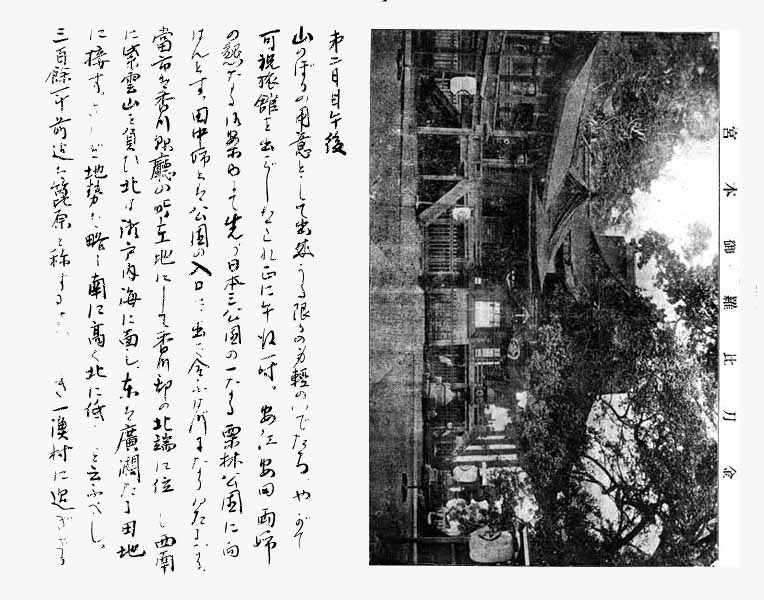 金刀比羅御本宮
第二日目午後
山のぼりの用意として出來うる限りの身輕のいでたち、やがて
可祝旅館を出でしはこれ正に午後一時。安江安田両師
の懇なる御案内にて先づ日本三公園の一なる栗林公園に向
はんとす。田中師とは公園の入口に出で会ふ
當市は香川縣廳の所在地にして香川郡の北端に位し西南
に紫雲山を負ひ北は瀬戸内海に面し、東は廣濶たる田地
に接す。されど地勢は略南に高く北に低 と云ふべし。
三百餘年前迄は箆原と稱する き一漁村に過ぎざる